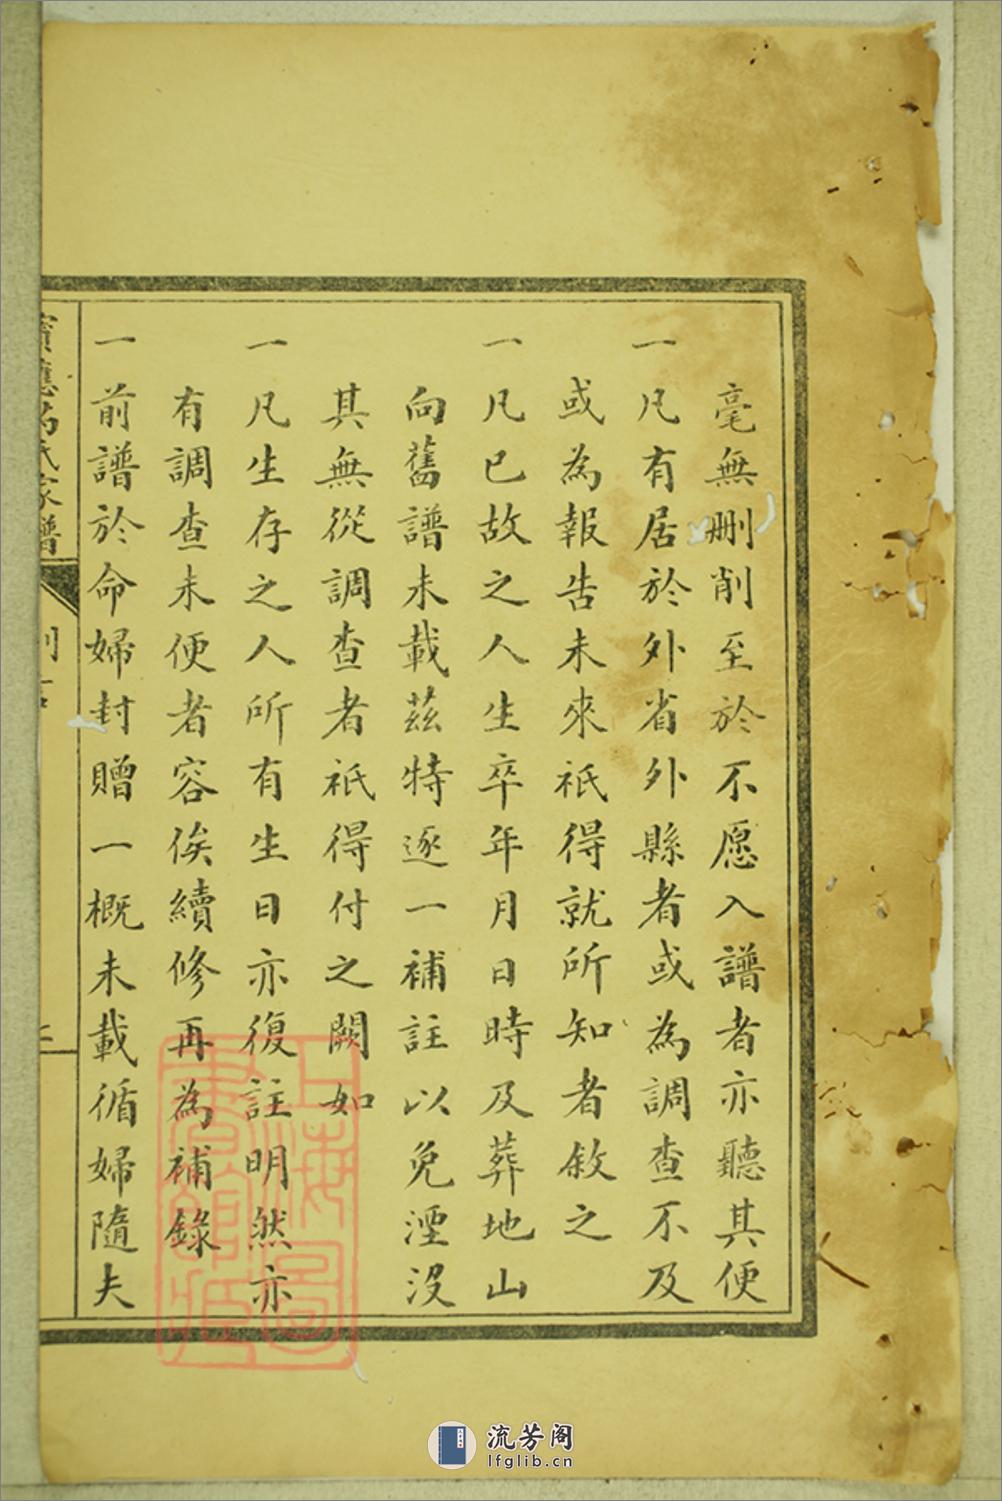 毫無刪削至於不愿入譜者亦聽其便
一凡有居於外省外縣者或為調查不及
或為報告未來祇得就所知者敘之
一凡已故之人生卒年月日時及葬地山
向舊譜未載茲特逐一補註以免湮沒
其無從調查者祇得付之闕如
一凡生存之人所有生日亦復註明然亦
有調查未便者容俟續修再為補錄
一前譜於命婦封贈一概未載循婦隨夫
上海圖
書館藏
流芳阁
lfglib.cn